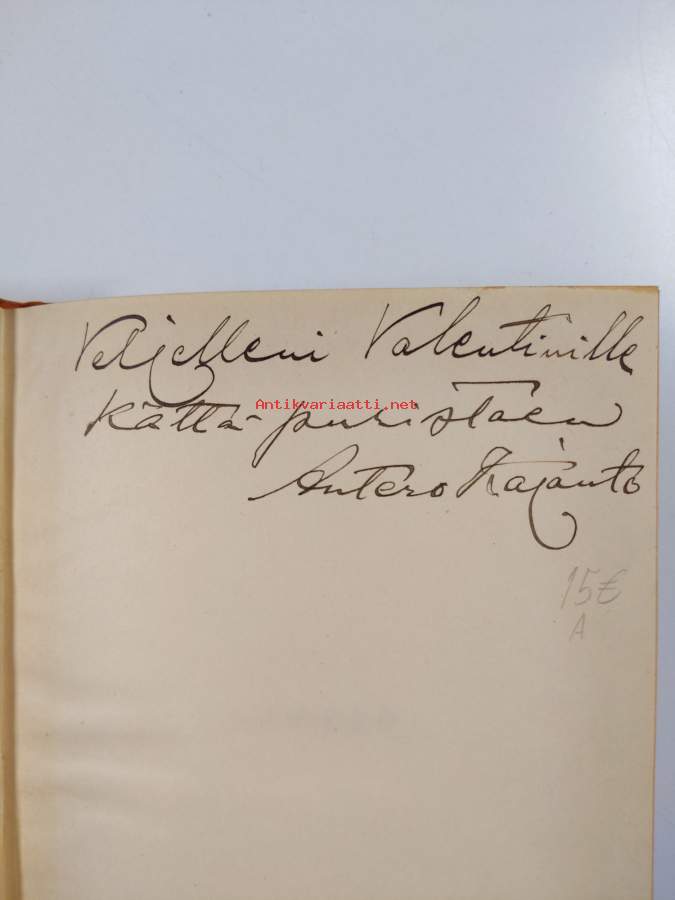 Veljelleni Valentinille
Antikvariaatti.net
kättä puristaen
Antero Kajanto
15€
A